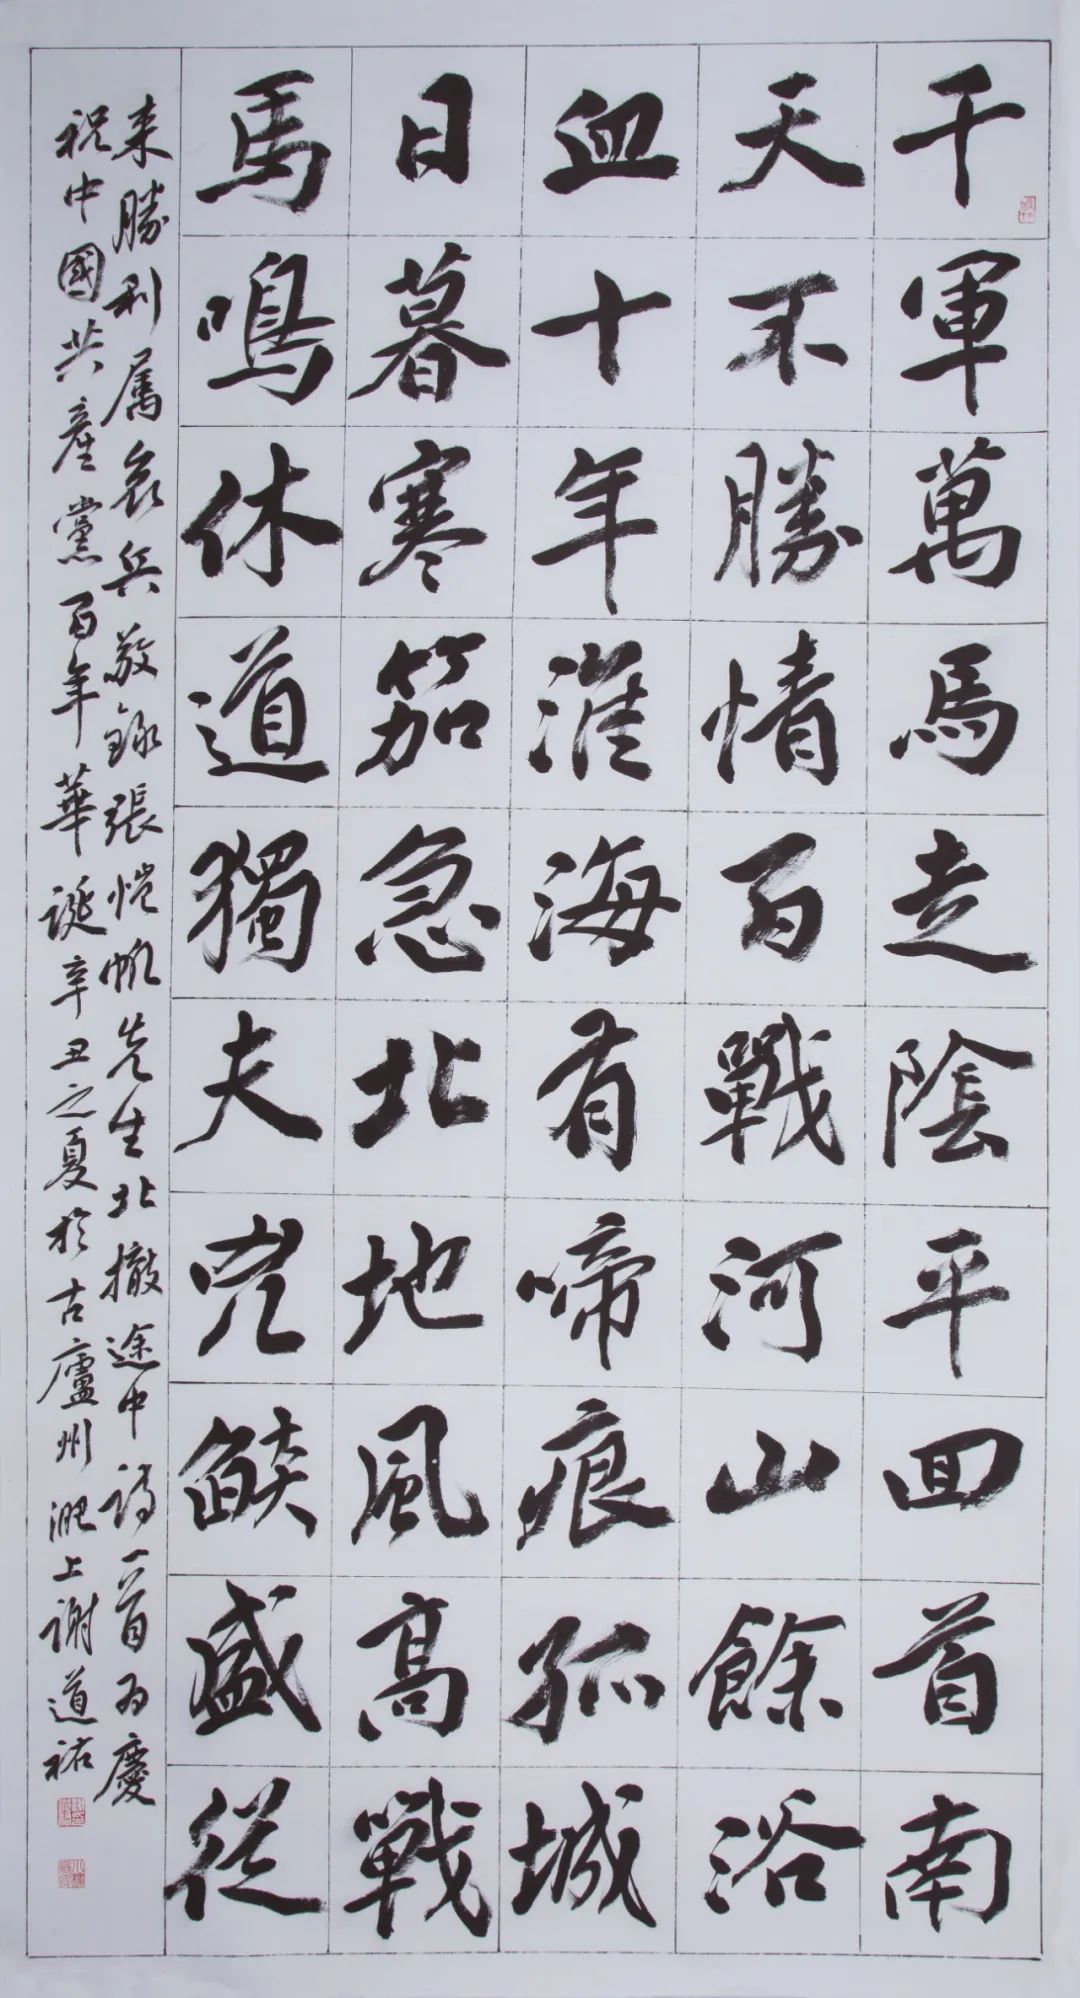 千軍萬馬走陰平回首南
天不勝情百戰河山餘浴
血十年淮海有啼痕孤城
日暮寒笳急北地風高戰
馬鳴休道獨夫兇燄盛從
来勝利属哀兵敬錄張愷帆先生北撤途中詩一首為慶
祝中國共產黨百年華誕辛丑之夏於古廬州淝上谢道祐